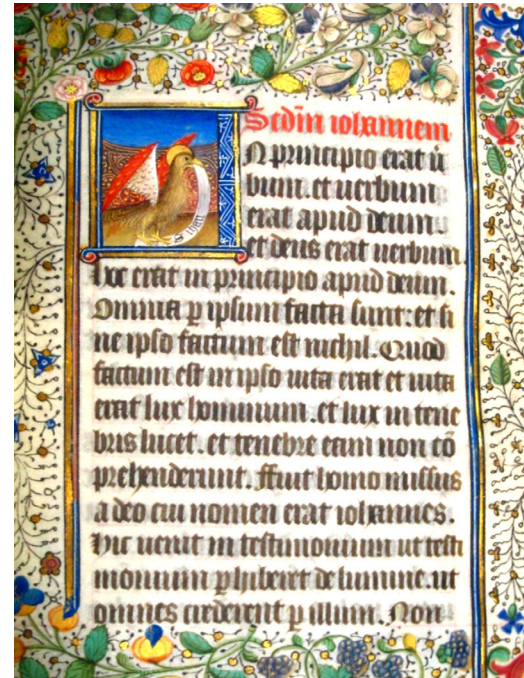 Scdm̄ iohannem
N principio erat ū
bum. et uerbum
erat apud deum.
et deus erat uerbum
hoc erat in principio apud deum.
Omnia p ipsum facta sunt: et si
ne ipso factum est nichil. Quod
factum est in ipso uita erat et uita
erat lux hominum. et lux in tene
bris lucet. et tenebre eam non cō
prehenderunt. ffuit homo missus
a deo cui nomen erat iohannes.
hic uenit in testimonium ut testi
monium phiberet de lumine. ut
omnes crederent p illum. Non